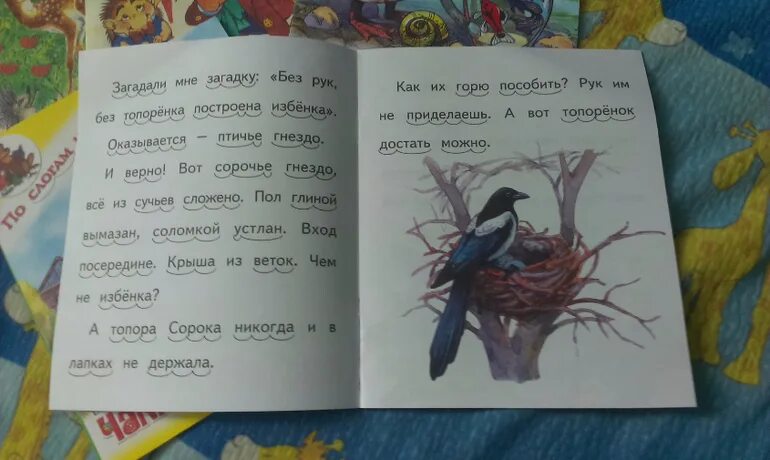 Загадали мне загадку: «Без рук,
без топорёнка построена избёнка».
Оказывается — птичье гнездо.
И верно! Вот сорочье гнездо,
всё из сучьев сложено. Пол глиной
вымазан, соломкой устлан. Вход
посередине. Крыша из веток. Чем
не избёнка?
А топора Сорока никогда и в
лапках не держала.
Как их горю пособить? Рук им
не приделаешь. А вот топорёнок
достать можно.
По слогам